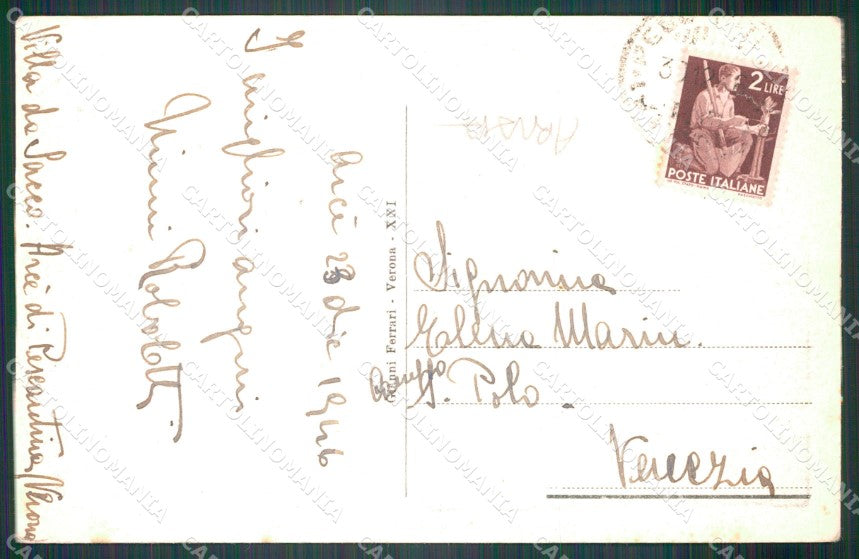 Villa da Sacco. Arcè di Pescantina (Verona
I migliori auguri
Ninni Robolotti.
Arcè 23 dic 1946
Gianni Ferrari - Verona - XXI
Signorina
Elena Marin.
Campo
S. Polo.
Venezia
2 LIRE
POSTE ITALIANE
CARTOLINOMANIA